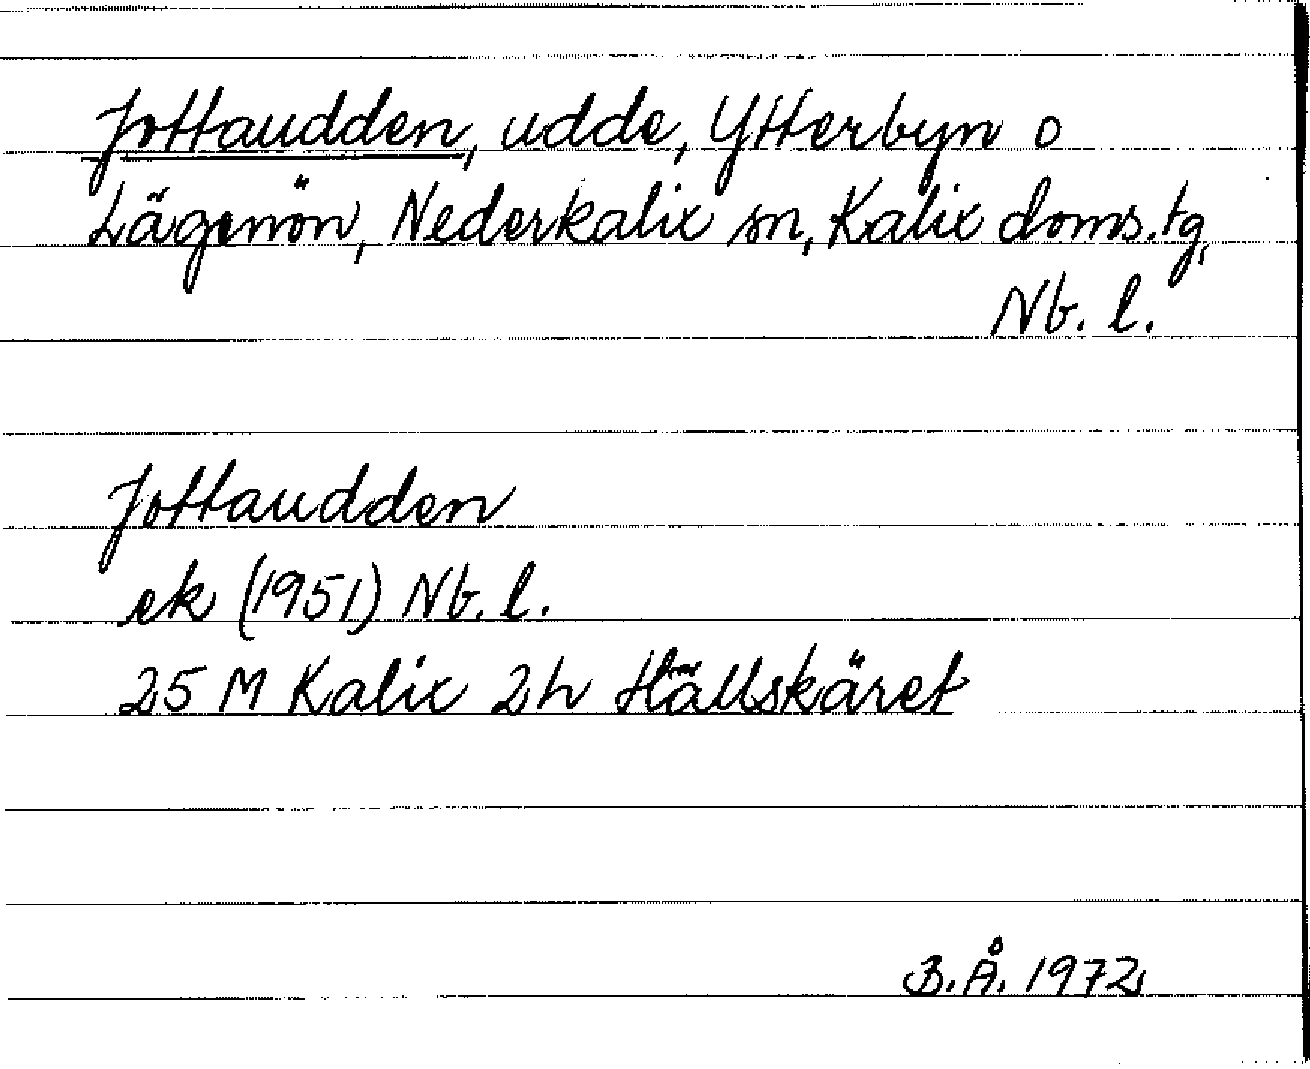 Jottaudden, udde, Ytterbyn o
Lägenön, Nederkalix sn, Kalix doms.tg,
Nb. l.
Jottaudden
ek (1951) Nb. l.
25 M Kalix 2h Hällskäret
B.Å. 1972